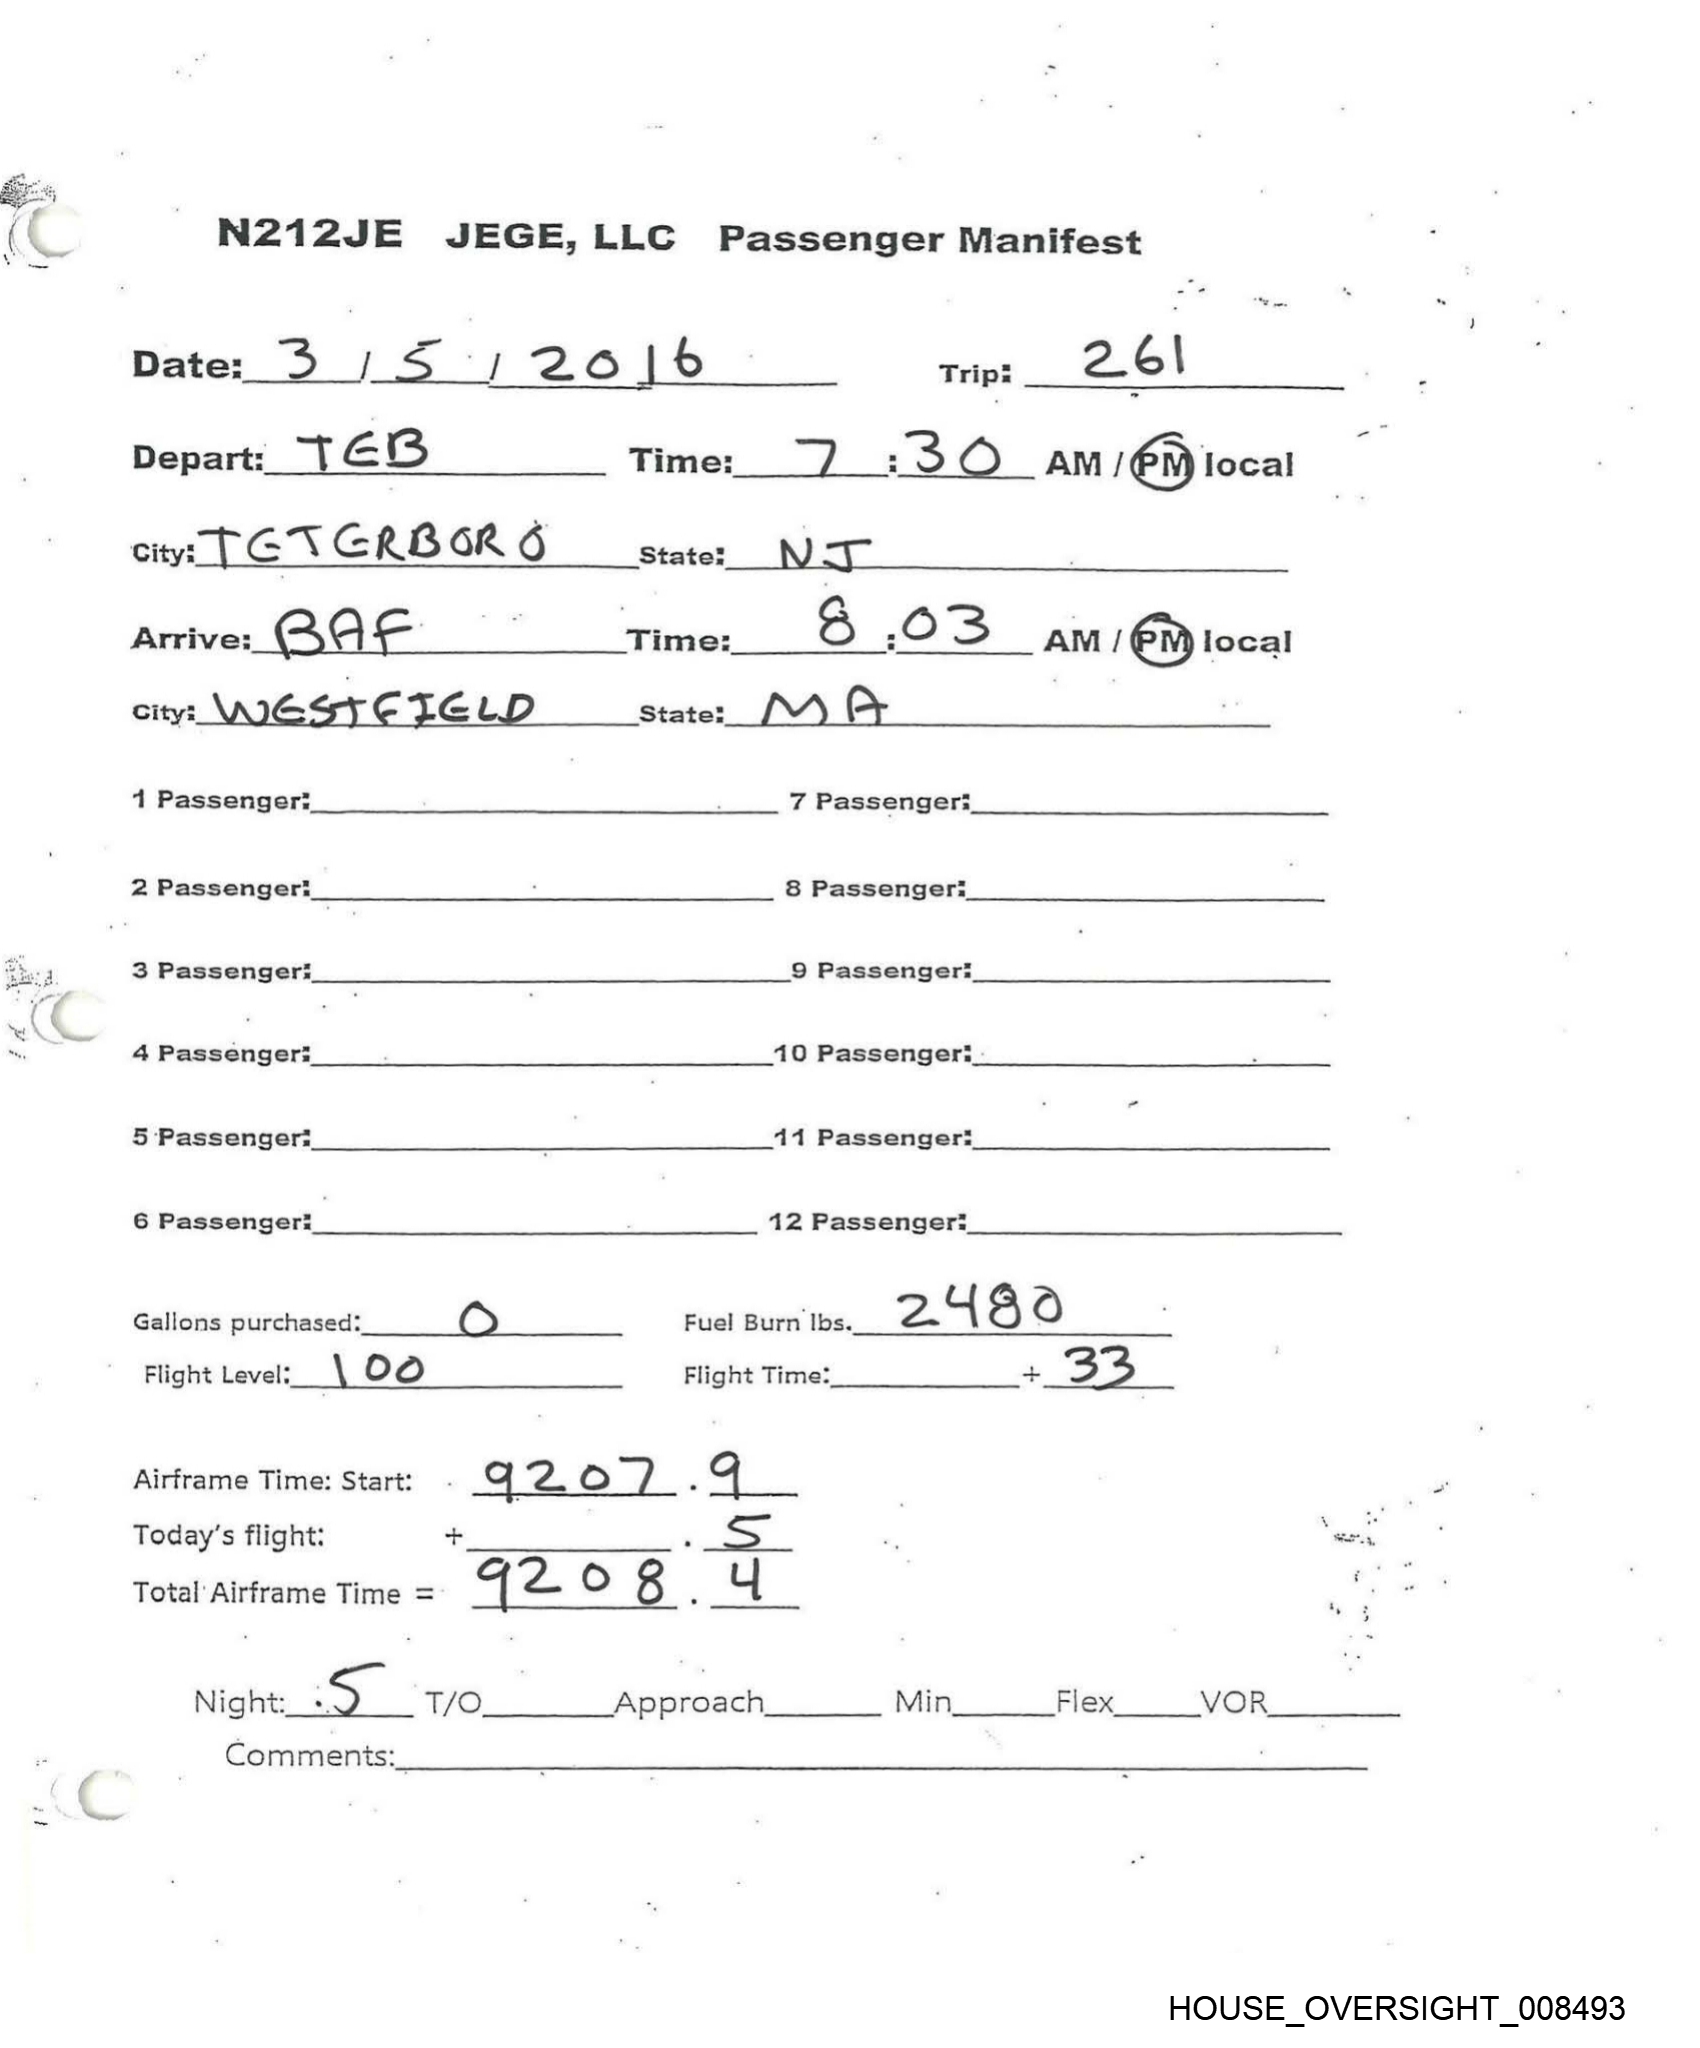 N212JE JEGE, LLC Passenger Manifest
Date: 3 / 5 / 2016 Trip: 261
Depart: TEB Time: 7 : 30 AM / PM local
City: TETERBORO State: NJ
Arrive: BAF Time: 8 : 03 AM / PM local
City: WESTFIELD State: MA
1 Passenger: 7 Passenger:
2 Passenger: 8 Passenger:
3 Passenger: 9 Passenger:
4 Passenger: 10 Passenger:
5 Passenger: 11 Passenger:
6 Passenger: 12 Passenger:
Gallons purchased: 0 Fuel Burn lbs. 2480
Flight Level: 100 Flight Time: + 33
Airframe Time: Start: 9207 . 9
Today's flight: + . 5
Total Airframe Time = 9208 . 4
Night: .5 T/O Approach Min Flex VOR
Comments:
HOUSE_OVERSIGHT_008493